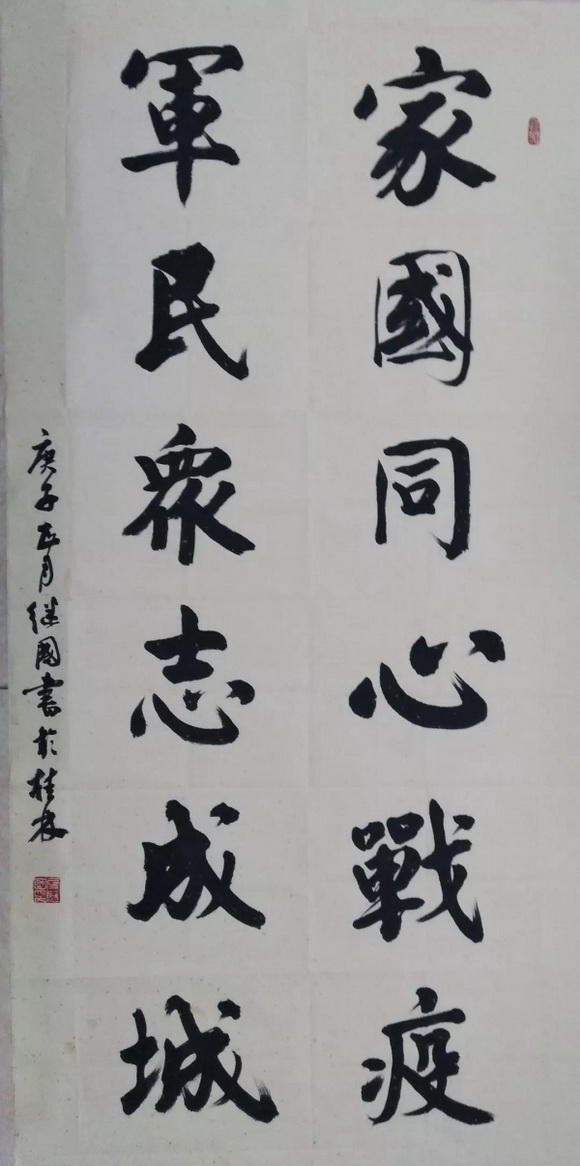 家國同心戰疫
軍民衆志成城
庚子正月继國書於桂林